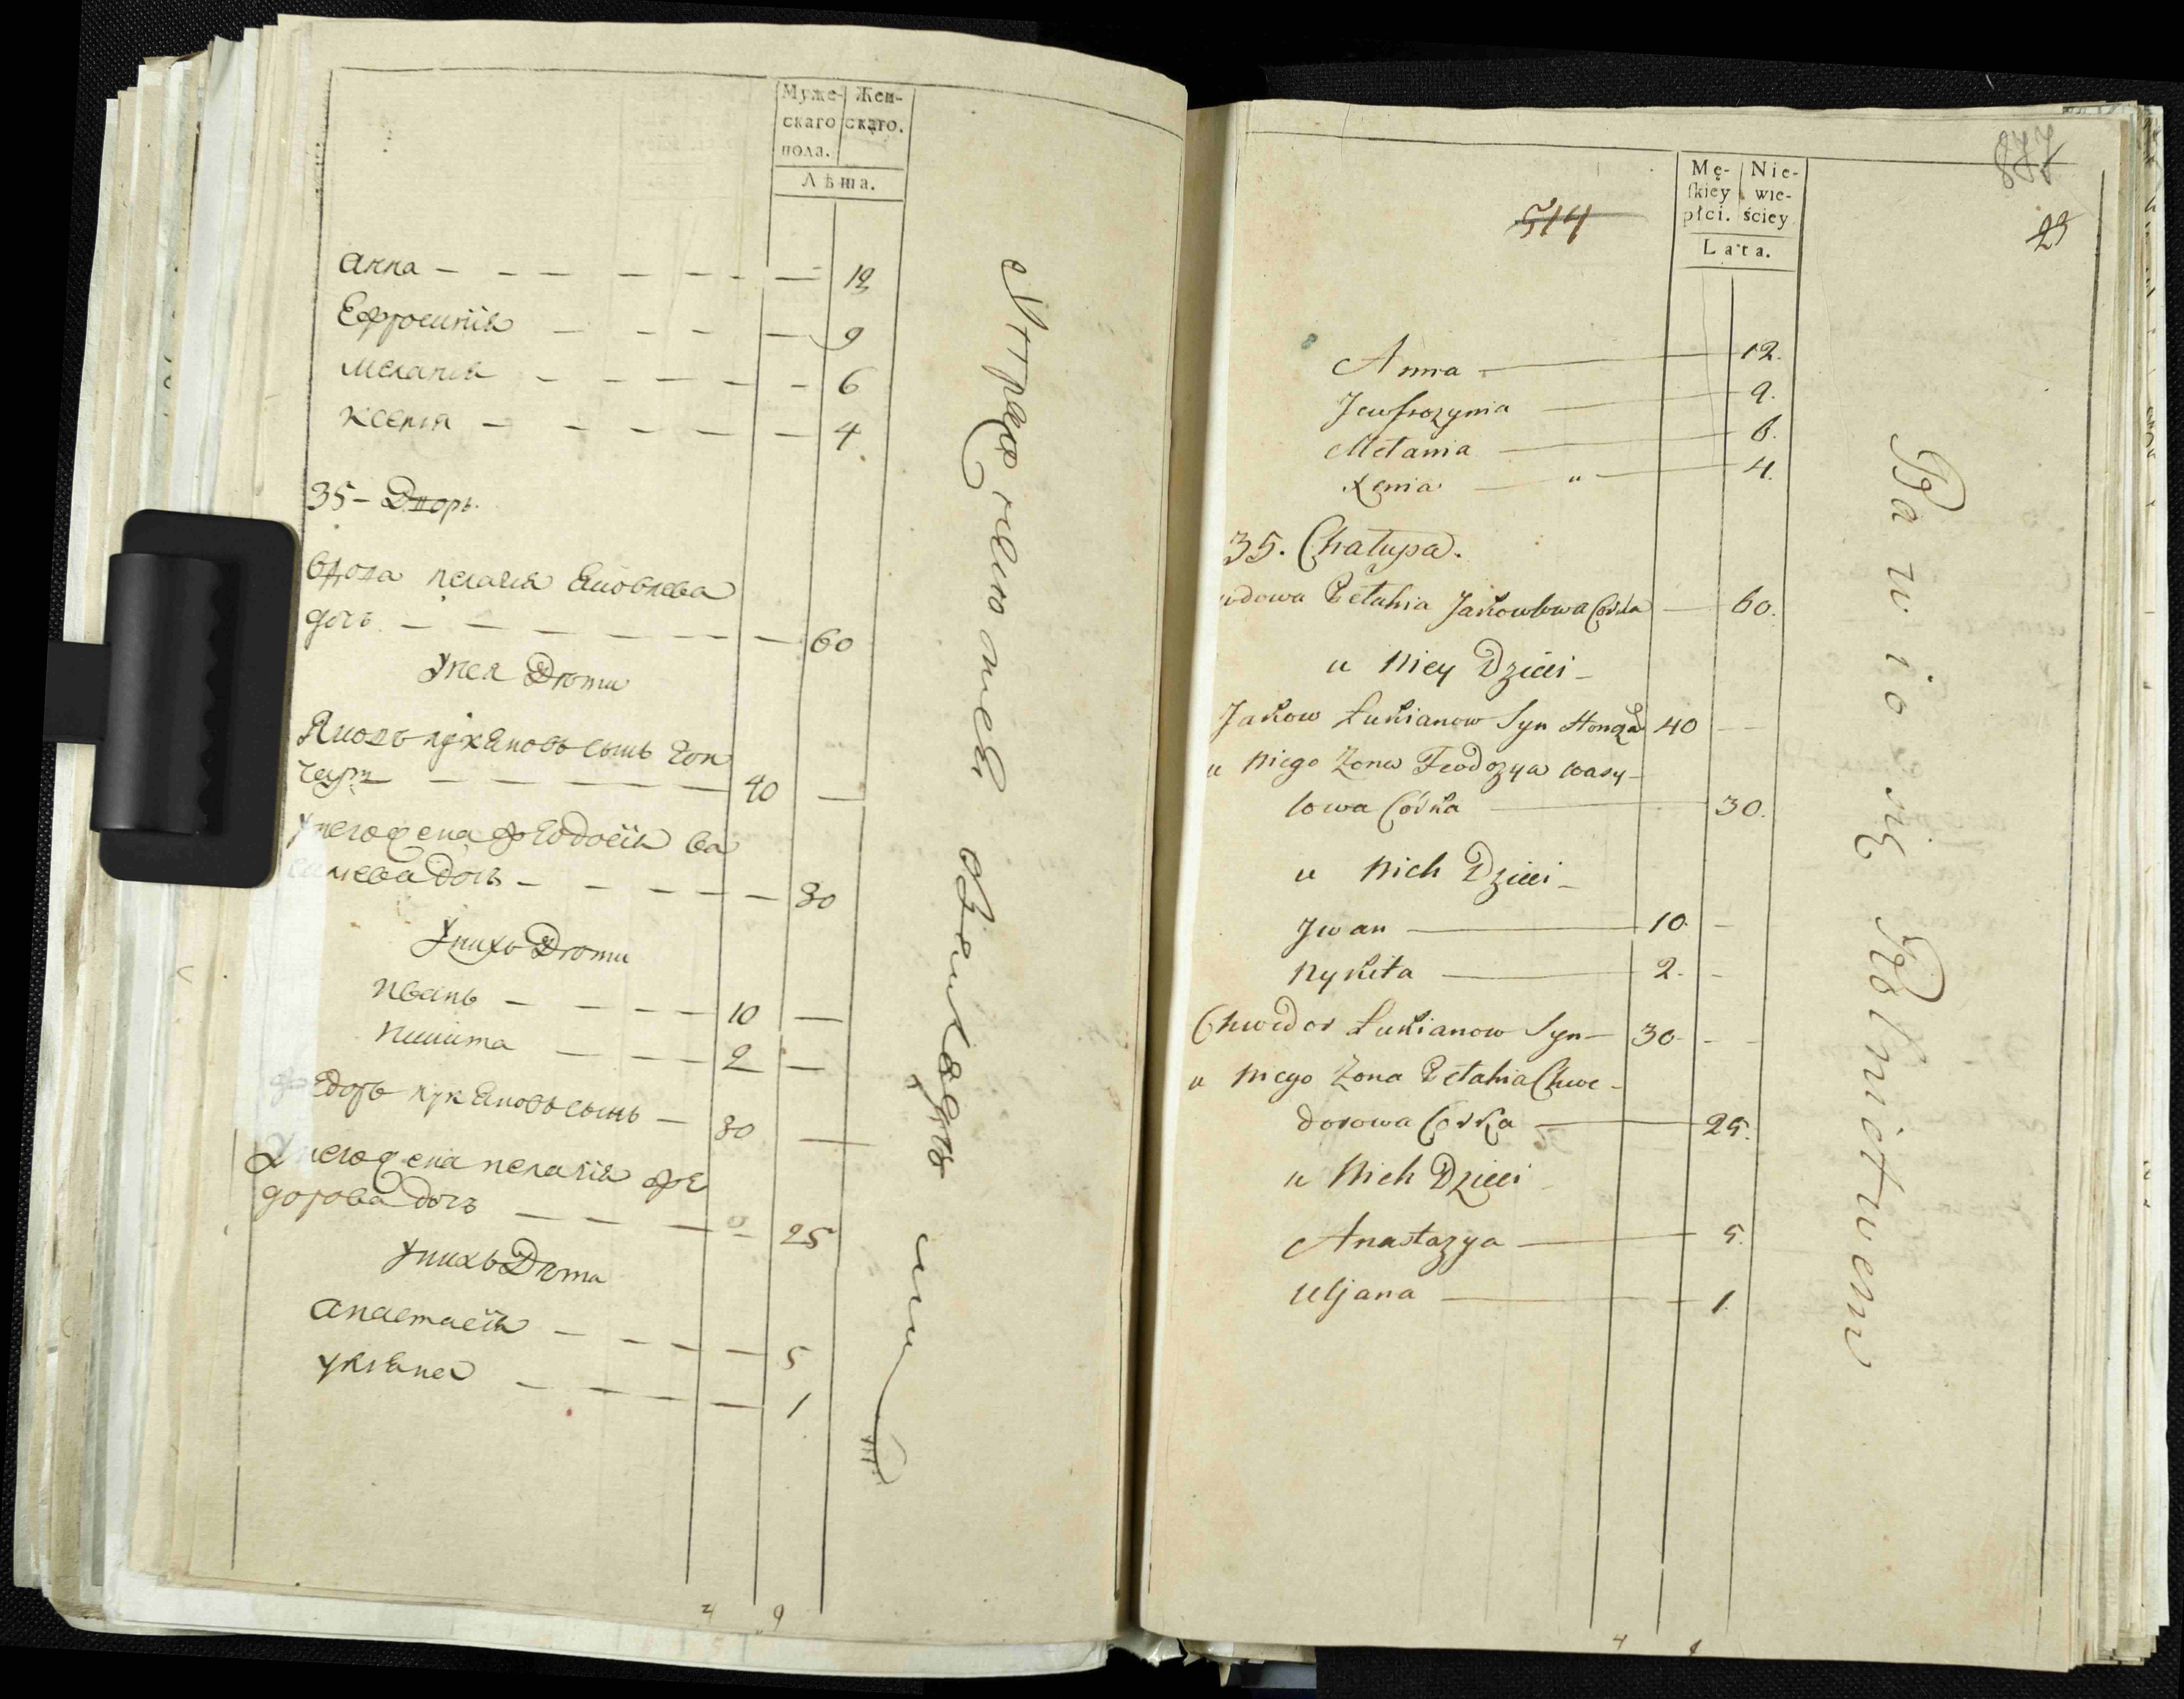 Муже- Жен-
скаго скаго.
пола.
Лѣта.
Анна — — — — — — 12
Ефросинія — — — — 9
Меланія — — — — — 6
Ксенія — — — — — 4
35 – Дворъ.
вдова пелагія Яковлева
дочь — — — — — — 60
унея Дѣти
Яковъ лукяновъ сынъ Гон
— — — — — 40 —
унего жена феодосія ва
силева дочь — — — — 30
унихъ Дѣти
иванъ — — — — 10 —
никита — — — 2 —
федоръ лукяновъ сынъ — 30 —
унего жена пелагія фе
дорова дочь — — — — 25
унихъ Дѣти
анастасія — — — — 5
уляна — — — — 1
4 9
877
23
514
Mę- Nie-
skiey wie-
płci. ściey
Lata.
Anna — 12.
Jewfrozynia — 9.
Mełania — 6.
Xenia — " — 4.
35. Chałupa.
wdowa Pełahia Jakowlowa Córka — 60.
u Niey Dzieci –
Jakow Łukianow Syn 40 —
u Niego Zona Feodozya Wasy-
lowa Córka — 30.
u Nich Dzieci –
Jwan — 10. –
Nykita — 2. –
Chwedor Łukianow Syn – 30 – –
u Niego Zona Pełahia Chwe-
dorowa Corka — 25.
u Nich Dzieci
Anastazya — 5.
Uljana — 1.
Bawio się Rolnictwem
4